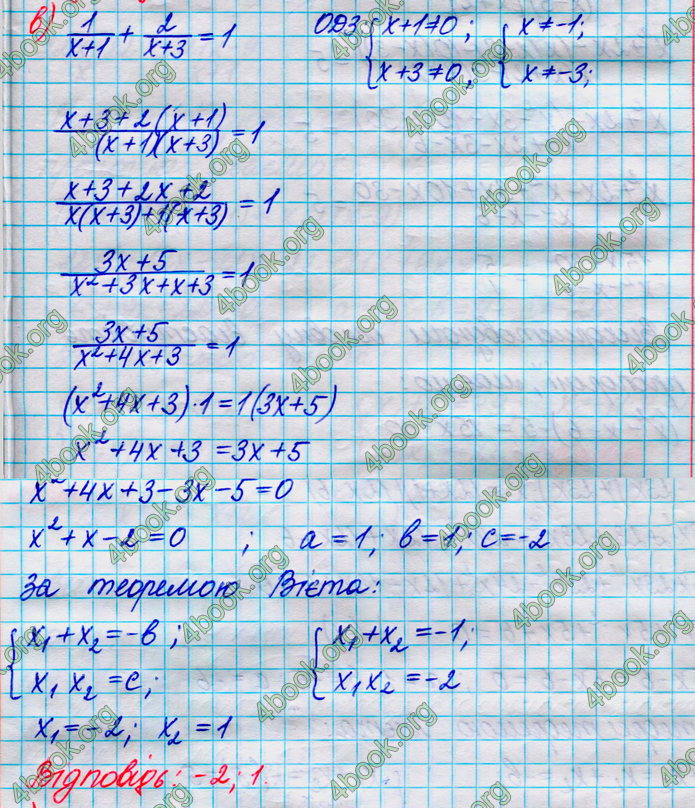 в) 1/(x+1) + 2/(x+3) = 1 ОДЗ { x+1≠0; { x≠-1;
x+3≠0, x≠-3;
(x+3+2(x+1))/((x+1)(x+3)) = 1
(x+3+2x+2)/(x(x+3)+1(x+3)) = 1
(3x+5)/(x²+3x+x+3) = 1
(3x+5)/(x²+4x+3) = 1
(x²+4x+3)·1=1(3x+5)
x²+4x+3=3x+5
x²+4x+3-3x-5=0
x²+x-2=0 ; a=1; в=1; c=-2
За теоремою Вієта:
{ x₁+x₂=-в; { x₁+x₂=-1;
x₁x₂=c; x₁x₂=-2
x₁=-2; x₂=1
Відповідь: -2; 1.
4book.org